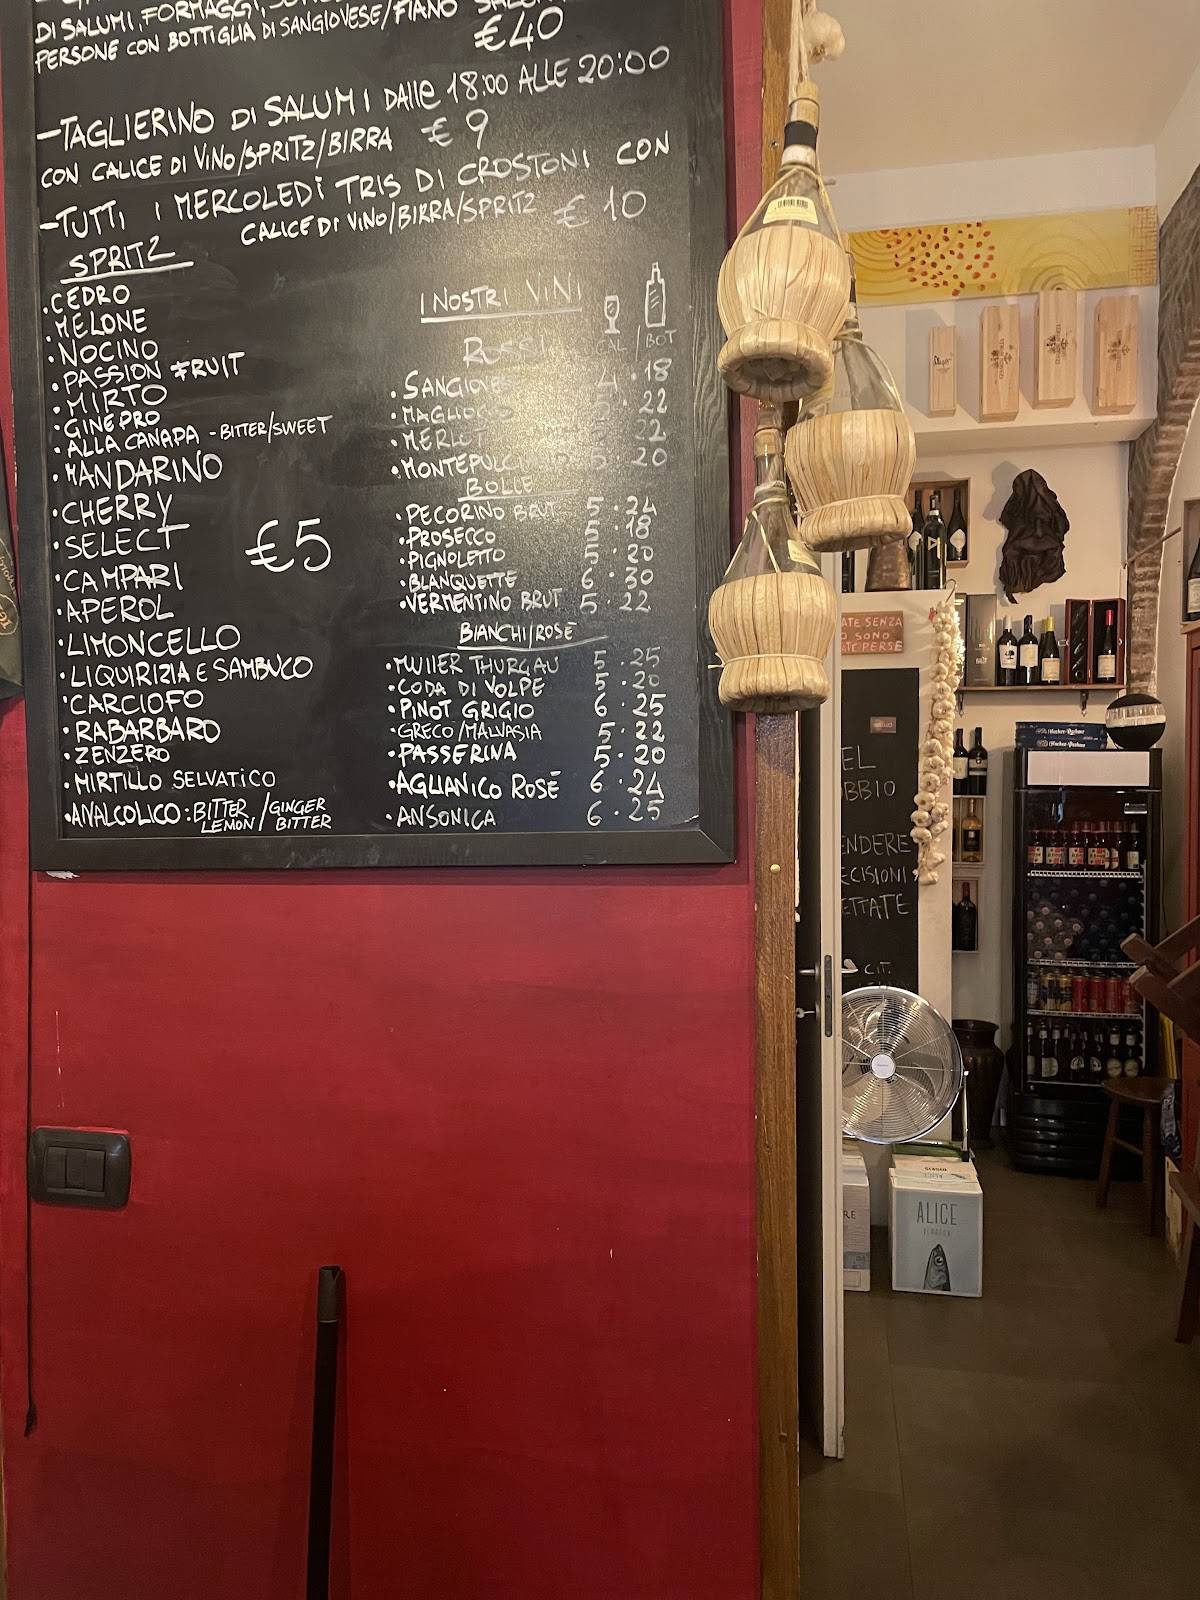 DI SALUMI, FORMAGGI,
PERSONE CON BOTTIGLIA DI SANGIOVESE/FIANO
€40
-TAGLIERINO DI SALUMI DALLE 18:00 ALLE 20:00
CON CALICE DI VINO/SPRITZ/BIRRA €9
-TUTTI I MERCOLEDÌ TRIS DI CROSTONI CON
CALICE DI VINO/BIRRA/SPRITZ €10
SPRITZ
·CEDRO
·MELONE
·NOCINO
·PASSION FRUIT
·MIRTO
·GINEPRO
·ALLA CANAPA - BITTER/SWEET
·MANDARINO
·CHERRY
·SELECT
€5
·CAMPARI
·APEROL
·LIMONCELLO
·LIQUIRIZIA E SAMBUCO
·CARCIOFO
·RABARBARO
·ZENZERO
·MIRTILLO SELVATICO
·ANALCOLICO: BITTER LEMON / GINGER BITTER
I NOSTRI VINI
ROSSI CAL / BOT
·SANGIOVE 4·18
·MAGLIOCCO 5·22
·MERLOT 5·22
·MONTEPULC 5·20
BOLLE
·PECORINO BRUT 5·24
·PROSECCO 5·18
·PIGNOLETTO 5·20
·BLANQUETTE 6·30
·VERMENTINO BRUT 5·22
BIANCHI/ROSÉ
·MULLER THURGAU 5·25
·CODA DI VOLPE 5·20
·PINOT GRIGIO 6·25
·GRECO/MALVASIA 5·22
·PASSERINA 5·20
·AGLIANICO ROSÉ 6·24
·ANSONICA 6·25
ATE SENZA
O SONO
ATE PERSE
EL
BBIO
ENDERE
ECISIONI
ETTATE
CIT.
Hacker-Pschorr
Hacker-Pschorr
RE
ALICE